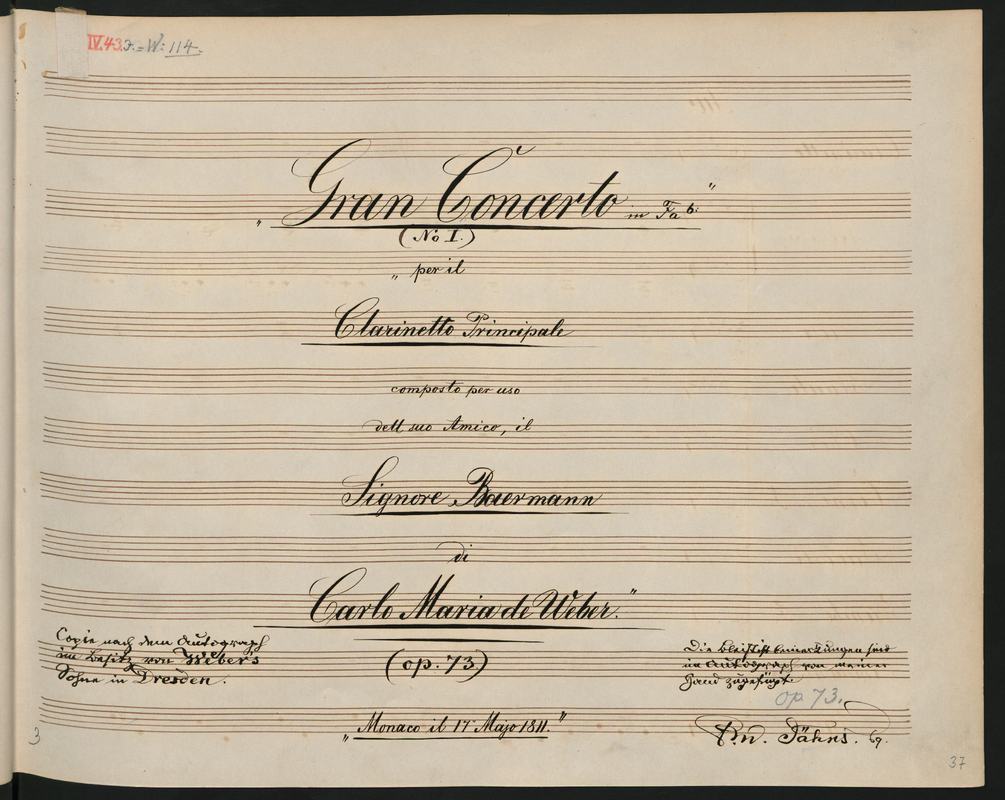 IV.43. J.=W: 114.
„Gran Concerto in Fa b:"
(No I.)
„per il
Clarinetto Principale
composto per uso
dell suo Amico, il
Signore Baermann
di
Carlo Maria de Weber."
(op. 73.)
„Monaco il 17 Majo 1811."
Copie nach dem Autograph
im Besitz von Weber's
Sohne in Dresden.
Die Bleistiftbemerkungen sind
im Autograph von meiner
Hand zugefügt.
op. 73.
F.W. Jähns.
3
37